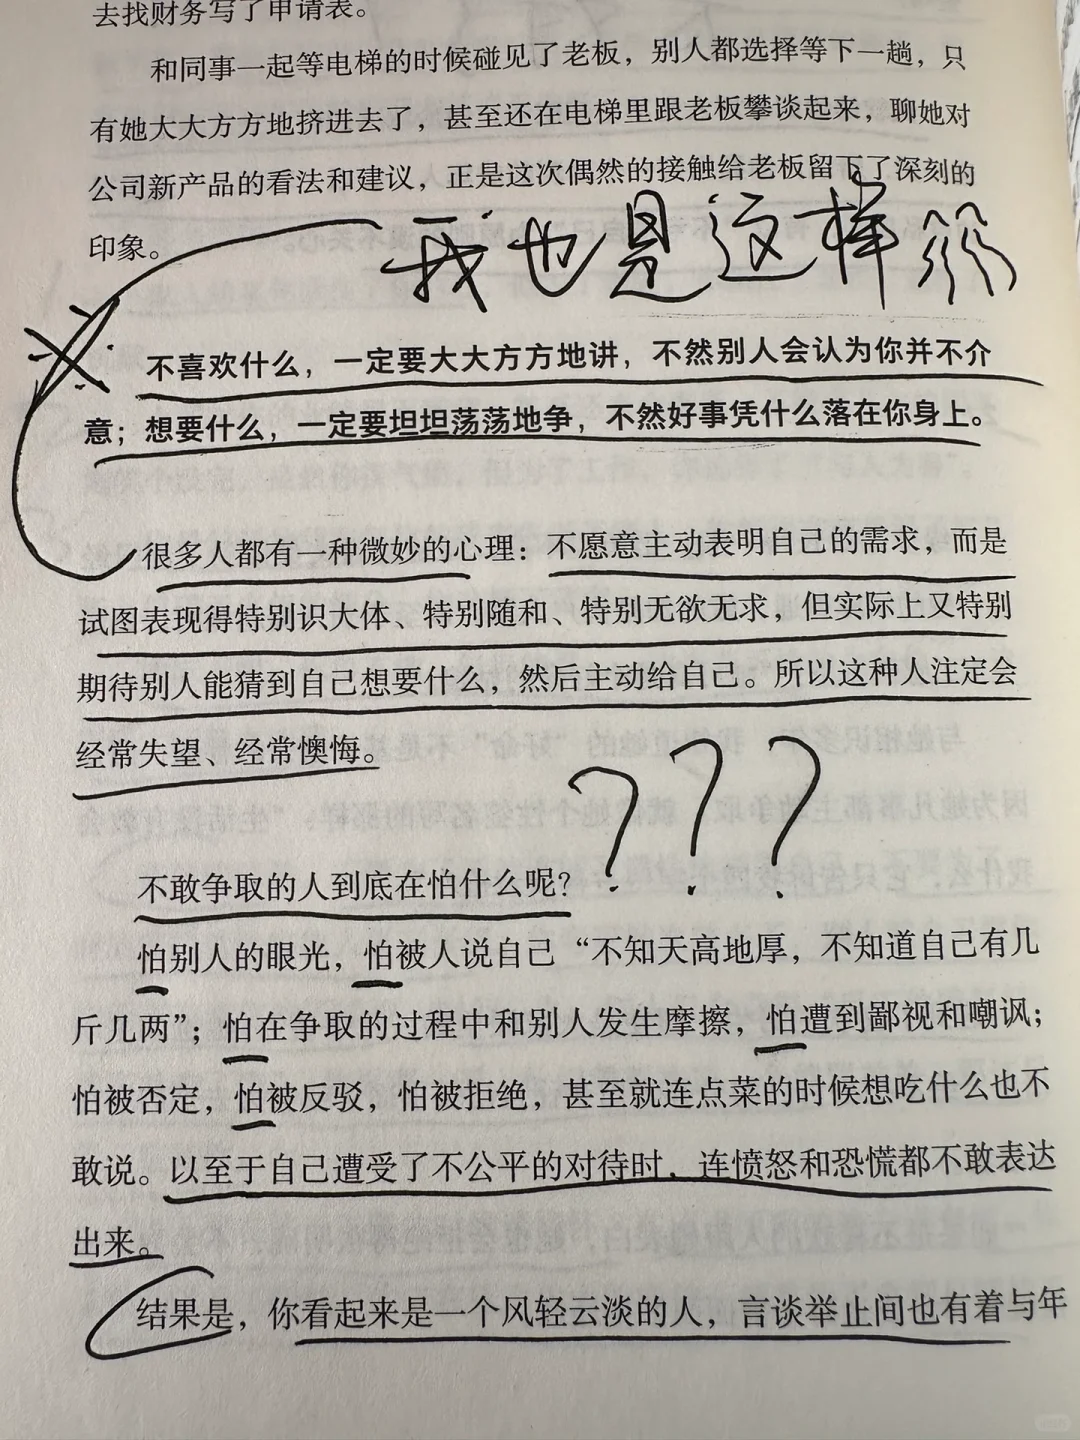 去找财务写了申请表。
和同事一起等电梯的时候碰见了老板，别人都选择等下一趟，只
有她大大方方地挤进去了，甚至还在电梯里跟老板攀谈起来，聊她对
公司新产品的看法和建议，正是这次偶然的接触给老板留下了深刻的
印象。
我也是这样
不喜欢什么，一定要大大方方地讲，不然别人会认为你并不介
意；想要什么，一定要坦坦荡荡地争，不然好事凭什么落在你身上。
很多人都有一种微妙的心理：不愿意主动表明自己的需求，而是
试图表现得特别识大体、特别随和、特别无欲无求，但实际上又特别
期待别人能猜到自己想要什么，然后主动给自己。所以这种人注定会
经常失望、经常懊悔。
???
不敢争取的人到底在怕什么呢？
怕别人的眼光，怕被人说自己“不知天高地厚，不知道自己有几
斤几两”；怕在争取的过程中和别人发生摩擦，怕遭到鄙视和嘲讽；
怕被否定，怕被反驳，怕被拒绝，甚至就连点菜的时候想吃什么也不
敢说。以至于自己遭受了不公平的对待时，连愤怒和恐慌都不敢表达
出来。
结果是，你看起来是一个风轻云淡的人，言谈举止间也有着与年